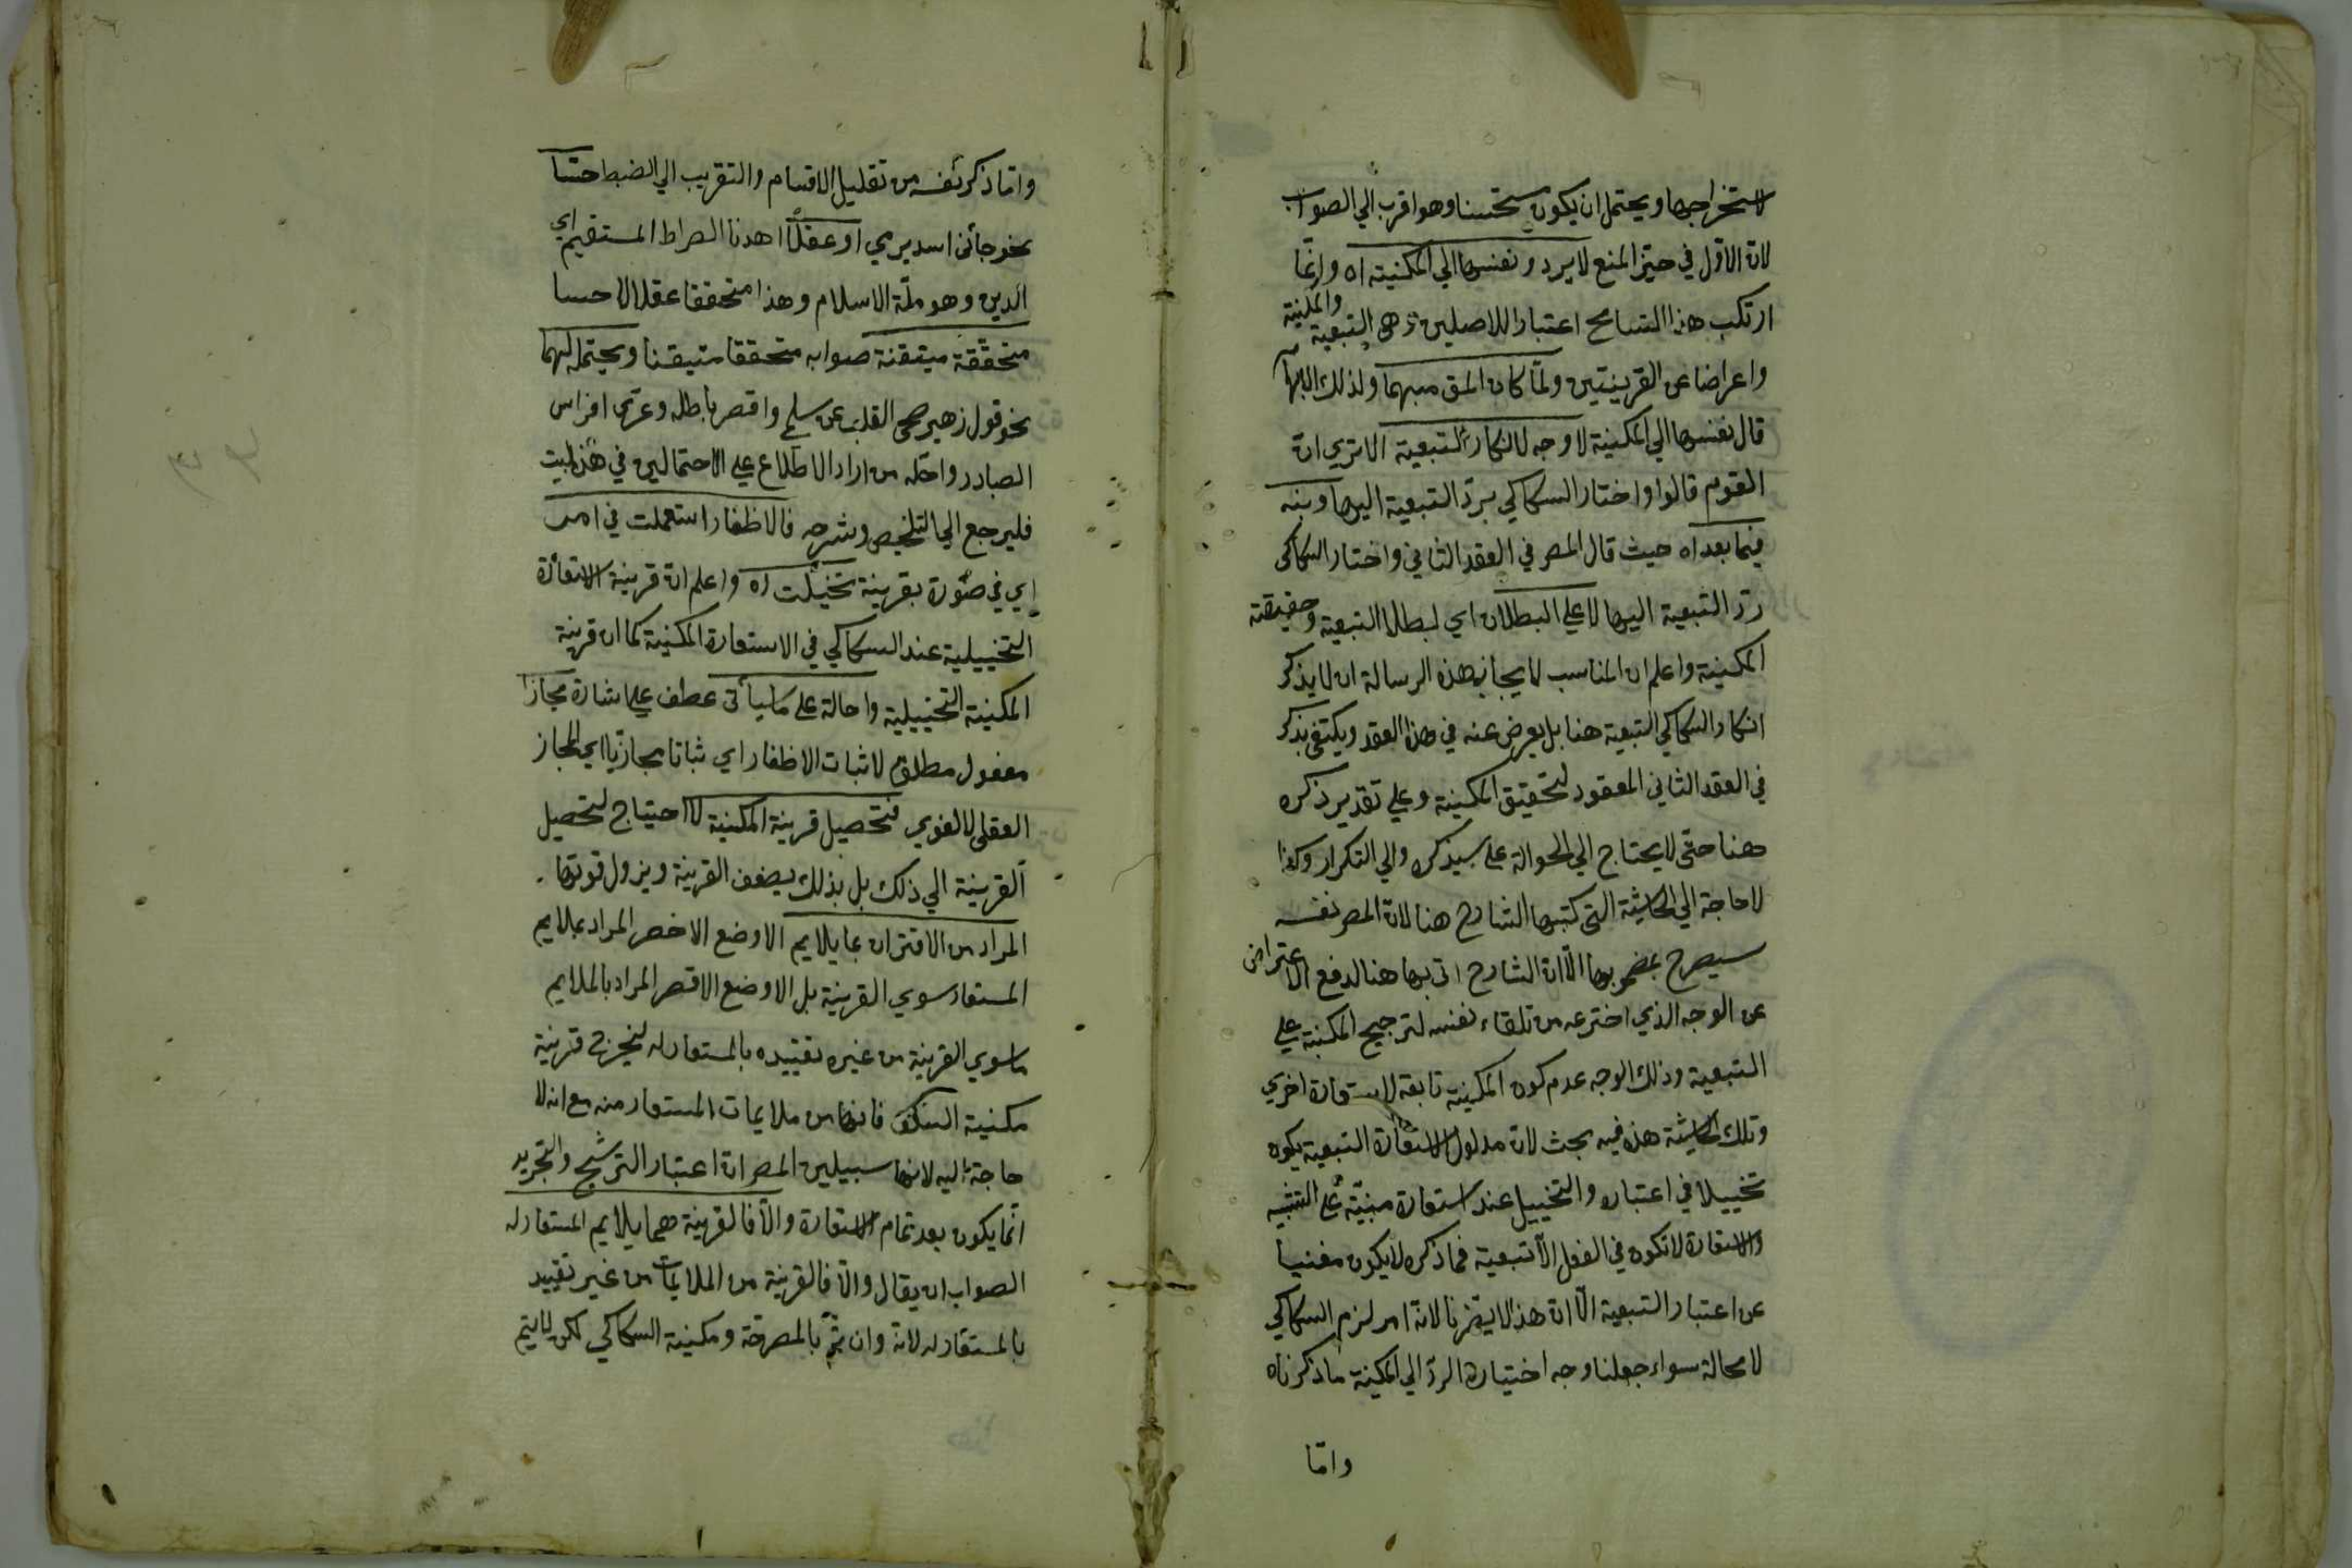 لاستخراجها ويحتمل ان يكون مستحسنا وهو اقرب الي الصواب
لان الاوّل في حيّز المنع لا يرد ونفسها الي المكنية اه وانّما
ارتكب هذا التسامح اعتبارا للاصلين وهى التبعية والمكنية
واعراضا عن القرينتين ولمّا كان المق مبهما ولذلك
قال نفسها الي المكنية لا وجه لانكار التبعية الا تري انّ
القوم قالوا واختار السكاكي بردّ التبعية اليها وبنه
فيما بعد اه حيث قال المصر في العقد الثاني واختار السكاكى
ردّ التبعية اليها لا علي البطلان اي لبطلان التبعية وحقيقته
المكنية واعلم ان المناسب لايجاز هذه الرسالة ان لا يذكر
انكار السكاكي التبعية هنا بل يعرض عنه في هذا العقد ويكتفى بذكره
في العقد الثاني المعقود لتحقيق المكنية وعلي تقدير ذكره
هنا حتّى لا يحتاج الي الحوالة على سيذكره والي التكرار وكذا
لا حاجة الي الحاشية التى كتبها الشارح هنا لانّ المصر نفسه
سيصرح بمضمونها الّا انّ الشارح اتى بها هنا لدفع الاعتراض
عن الوجه الذي اخترعه من تلقاء نفسه لترجيح المكنية علي
التبعية وذلك الوجه عدم كون المكنية تابعة لاستعارة اخري
وتلك الحاشية هذه فيه بحث لانّ مدلول الاستعارة التبعية يكون
تخييلا في اعتباره والتخييل عند استعارة مبنيّة على التشبيه
والاستعارة لا تكون في الفعل الّا تبعية فما ذكره لا يكون مغنيا
عن اعتبار التبعية الّا انّ هذا لا يضرنا لانّه امر لزم السكاكي
لا محالة سواء جعلنا وجه اختياره الردّ الي المكنية ما ذكرناه
وامّا
وامّا ذكر نفسه من تقليل الاقسام والتقريب الي الضبط حسّا
نحو جائني اسد يرمي او عقلًا اهدنا الصراط المستقيم اي
الدين وهو ملّة الاسلام وهذا متحققا عقلا لا حسا
متحقّقة متيقنة صوابه متحققا متيقنا ويحتملهما
نحو قول زهير صحى القلب عن سلمى واقصر باطله وعرّى افراس
الصبا ورواحله من اراد الاطّلاع علي الاحتمالين في هذا البيت
فليرجع الي التلخيص وشرحه فالاظفار استعملت في امر
اي في صورة بقرينة تخيّلت اه واعلم انّ قرينة الاستعارة
التخييلية عند السكاكي في الاستعارة المكنية كما ان قرينة
المكنية التخييلية واحالة على ما سيأتى عطف علي اشارة مجازا
مفعول مطلق لاثبات الاظفار اي ثباتا مجازيّا اي المجاز
العقلى لا لغوي فتحصيل قرينة المكنية لا احتياج لتحصيل
القرينة الي ذلك بل بذلك يضعف القرينة ويزول قوتها
المراد من الاقتران بما يلايم الاوضع الاخصر المراد بملايم
المستعار سوي القرينة بل الاوضع الاقصر المراد بالملايم
ما سوي القرينة من غيره تقييده بالمستعار له ليخرج قرينة
مكنية السكّ فانها من ملايمات المستعار منه مع انه لا
حاجة اليه لانها سيبين المصر انّ اعتبار الترشيح والتجريد
انّما يكون بعد تمام الاستعارة والّا فالقرينة مما يلايم المستعار له
الصواب ان يقال والّا فالقرينة من الملايمات من غير تقييد
بالمستعار له لانّه وان تمّ بالمصرحة ومكنية السكاكي لكن لا يتم